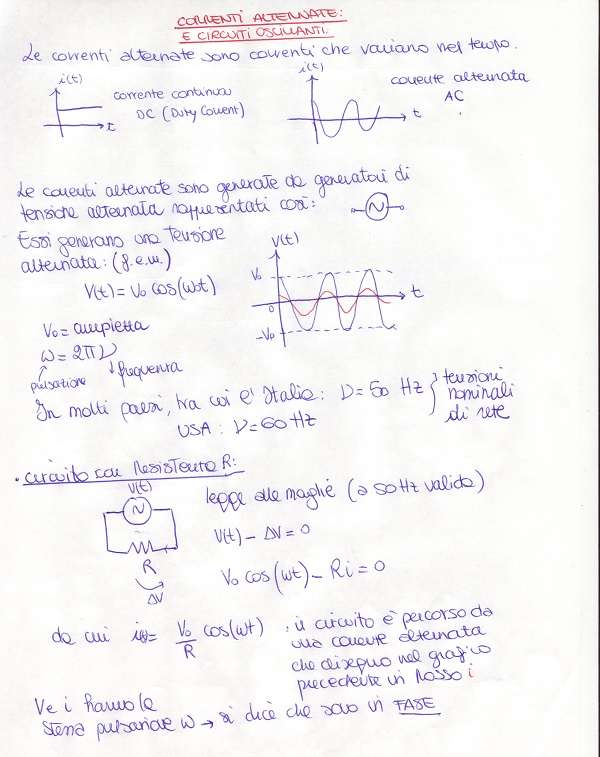 CORRENTI ALTERNATE:
E CIRCUITI OSCILLANTI:
Le correnti alternate sono correnti che variano nel tempo.
i(t)
corrente continua
DC (Duty Current)
t
i(t)
corrente alternata
AC
t
Le correnti alternate sono generate da generatori di
tensione alternata rappresentati così:
Essi generano una tensione
alternata: (f.e.m.)
V(t) = V₀ cos(ωt)
V(t)
V₀
0
-V₀
t
V₀ = ampiezza
ω = 2πν
pulsazione
frequenza
In molti paesi, tra cui l'Italia: ν = 50 Hz
USA: ν = 60 Hz
tensioni
nominali
di rete
• circuito con Resistenza R:
V(t)
R
ΔV
legge alle maglie (a 50Hz valida)
V(t) - ΔV = 0
V₀ cos(ωt) - Ri = 0
da cui i(t) = V₀/R cos(ωt)
, il circuito è percorso da
una corrente alternata
che disegno nel grafico
precedente in Rosso i
V e i hanno la
stessa pulsazione ω → si dice che sono in FASE